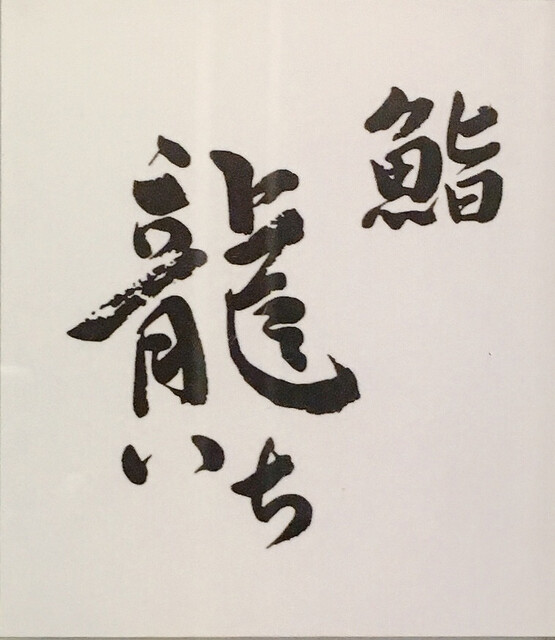 鮨
龍
いち